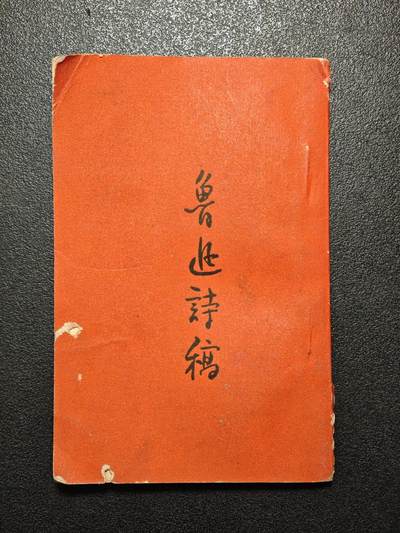 魯迅詩稿